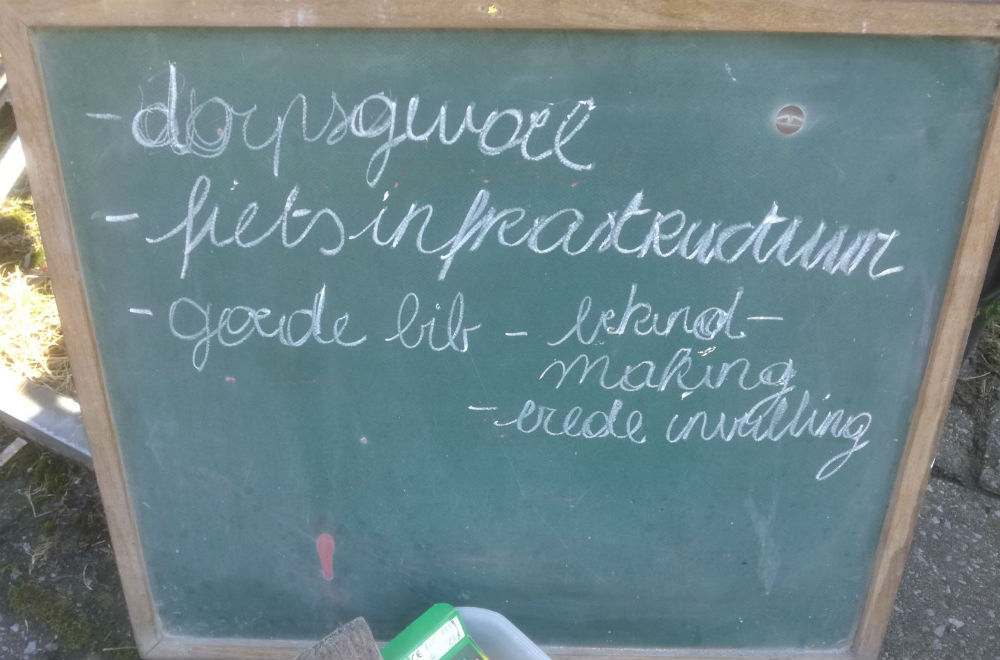 - dorpsgevoel
- fietsinfrastructuur
- goede bib - bekend-
making
- brede invulling